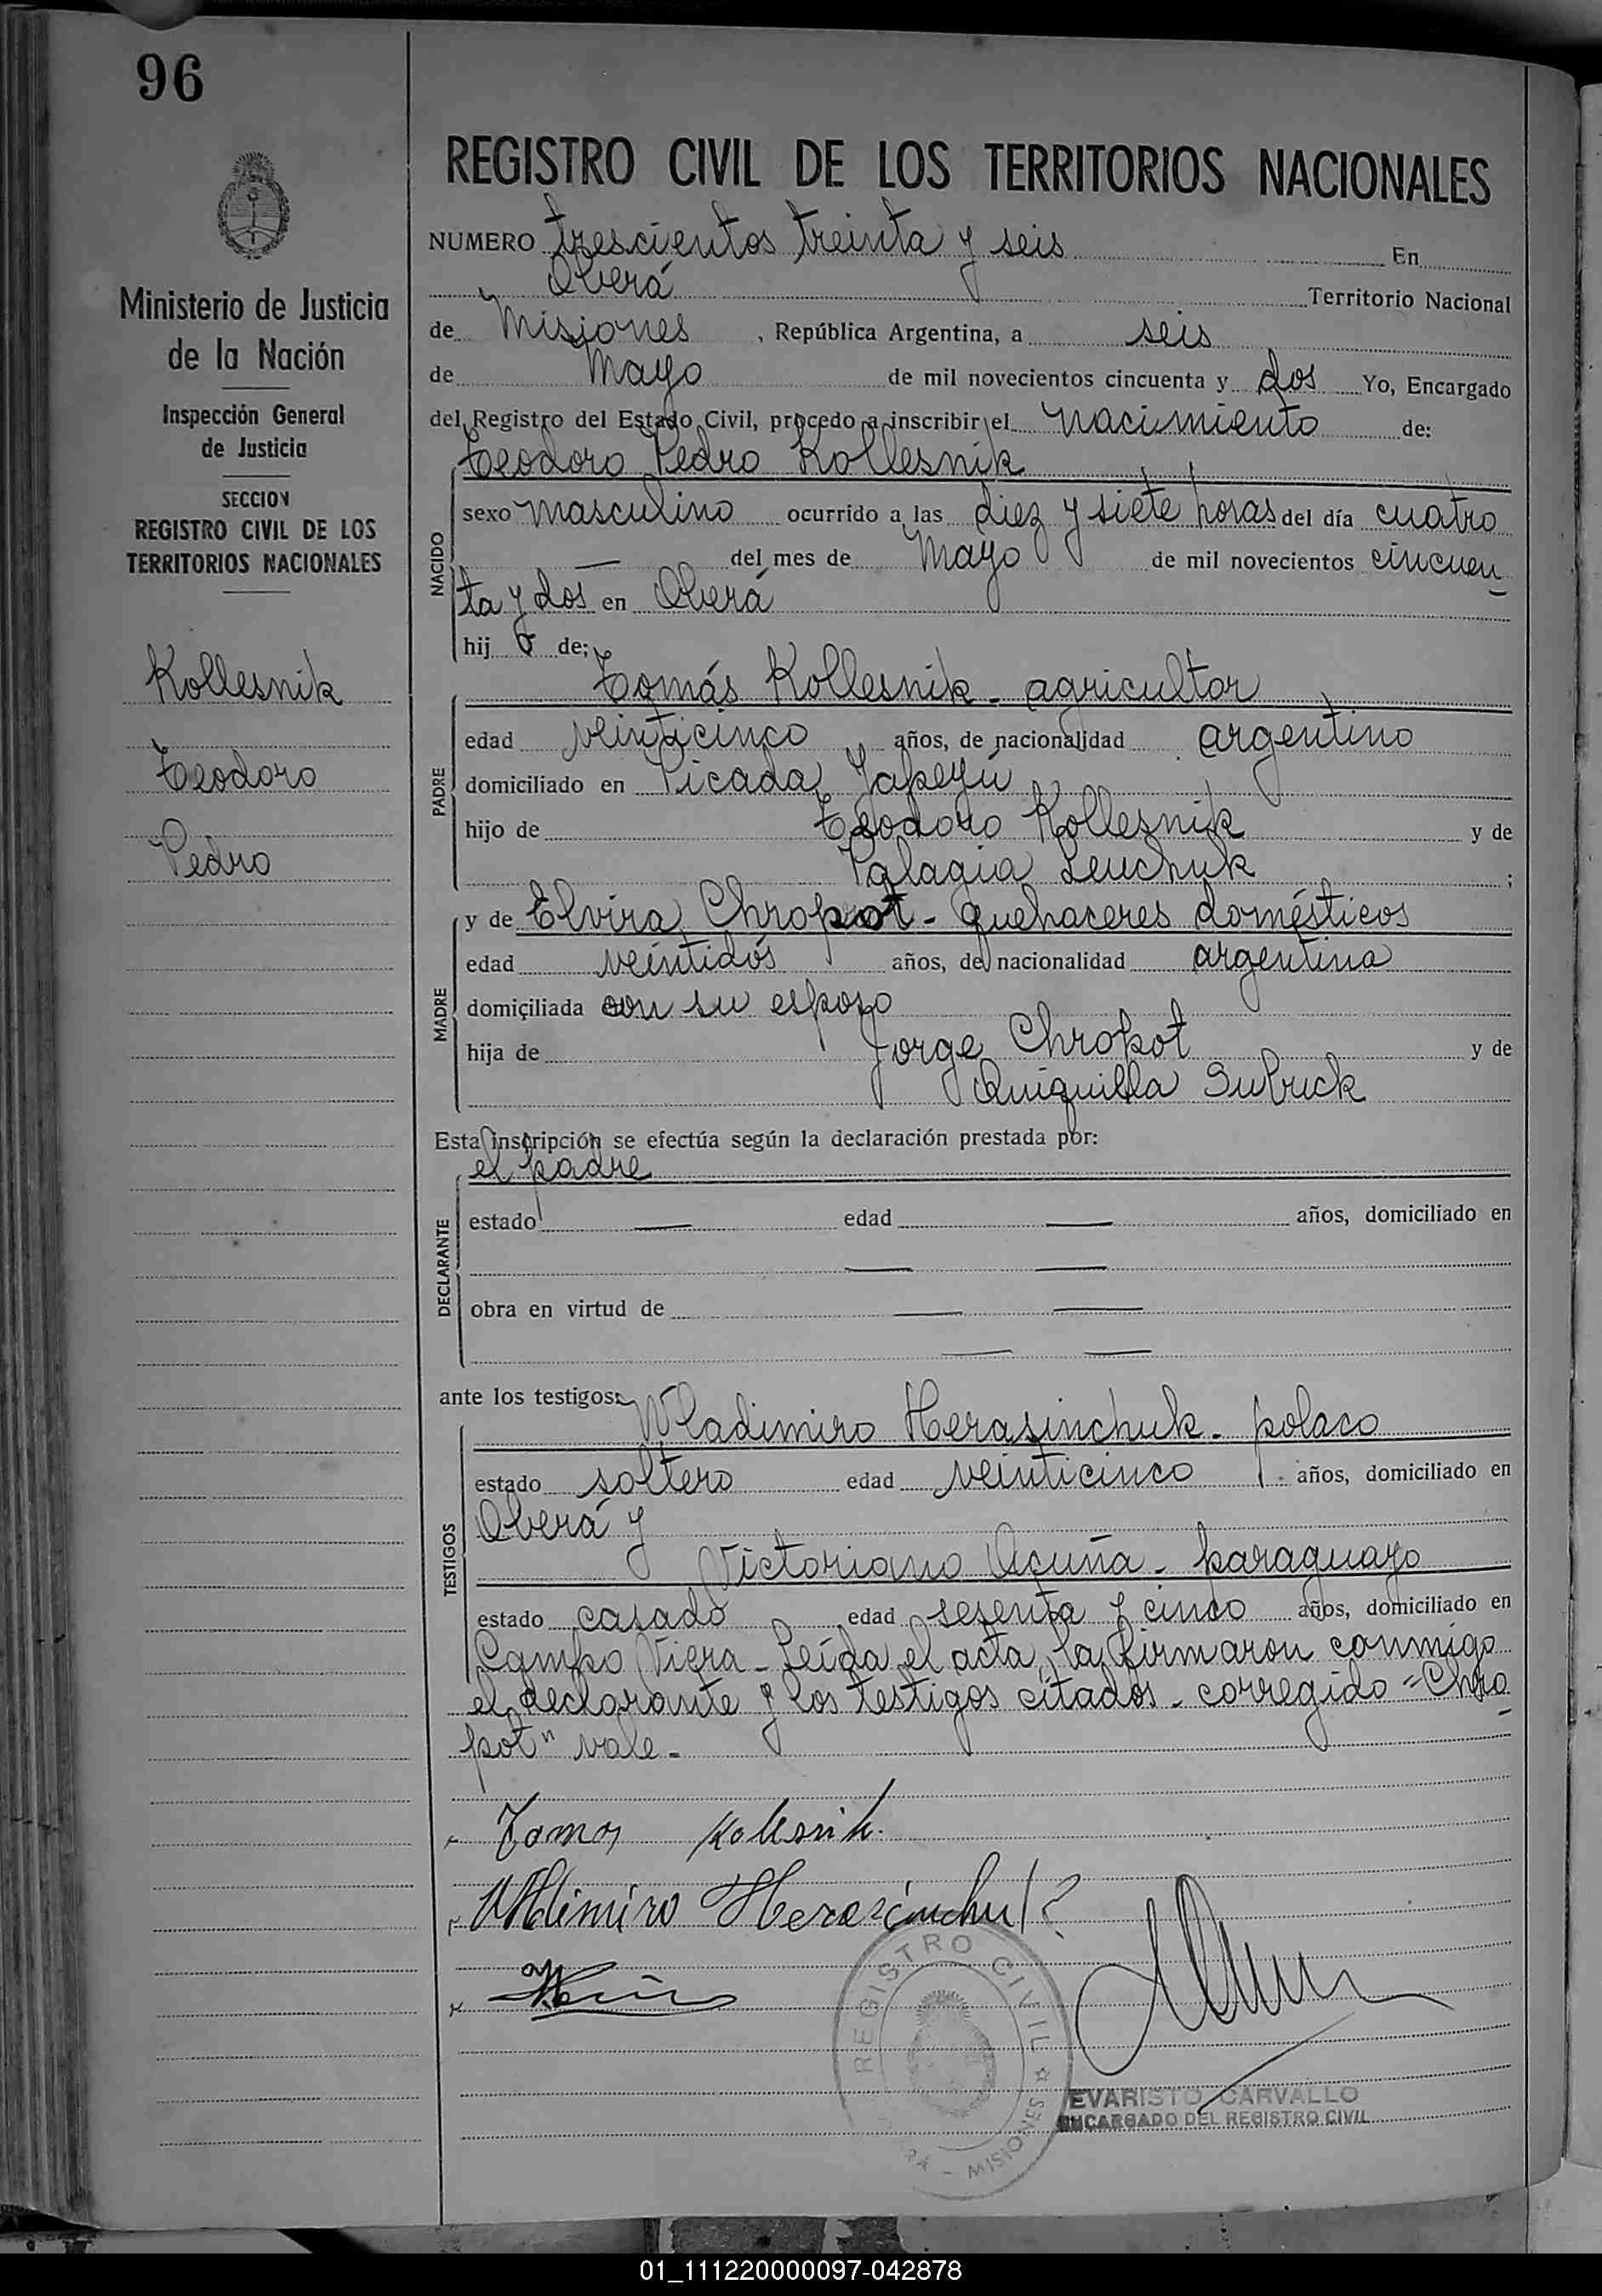 96
REGISTRO CIVIL DE LOS TERRITORIOS NACIONALES
Ministerio de Justicia
de la Nación
Inspección General
de Justicia
SECCION
REGISTRO CIVIL DE LOS
TERRITORIOS NACIONALES
Kollesnik
Teodoro
Pedro
NUMERO trescientos treinta y seis En
Oberá Territorio Nacional
de Misiones, República Argentina, a seis
de Mayo de mil novecientos cincuenta y dos Yo, Encargado
del Registro del Estado Civil, procedo a inscribir el nacimiento de:
Teodoro Pedro Kollesnik
NACIDO
sexo masculino ocurrido a las diez y siete horas del día cuatro
— del mes de Mayo de mil novecientos cincuen
ta y dos en Oberá
hij o de:
PADRE
Tomás Kollesnik - agricultor
edad veinticinco años, de nacionalidad argentino
domiciliado en Picada Yapeyú
hijo de Teodoro Kollesnik y de
Palagia Leuchuk ;
MADRE
y de Elvira Chropot - quehaceres domésticos
edad veintidós años, de nacionalidad argentina
domiciliada con su esposo
hija de Jorge Chropot y de
Quiquilla Subuck
Esta inscripción se efectúa según la declaración prestada por:
el padre
DECLARANTE
estado — edad — años, domiciliado en
— —
obra en virtud de — —
— —
ante los testigos:
TESTIGOS
Wladimiro Herasinchuk - polaco
estado soltero edad veinticinco años, domiciliado en
Oberá y
Victoriano Acuña - paraguayo
estado casado edad sesenta y cinco años, domiciliado en
Campo Viera - Leída el acta, la firmaron conmigo
el declarante y los testigos citados - corregido "Chro
pot" vale -
Tomas Kolesnik.
REGISTRO CIVIL
MISIONES
EVARISTO CARVALLO
ENCARGADO DEL REGISTRO CIVIL
01_111220000097-042878